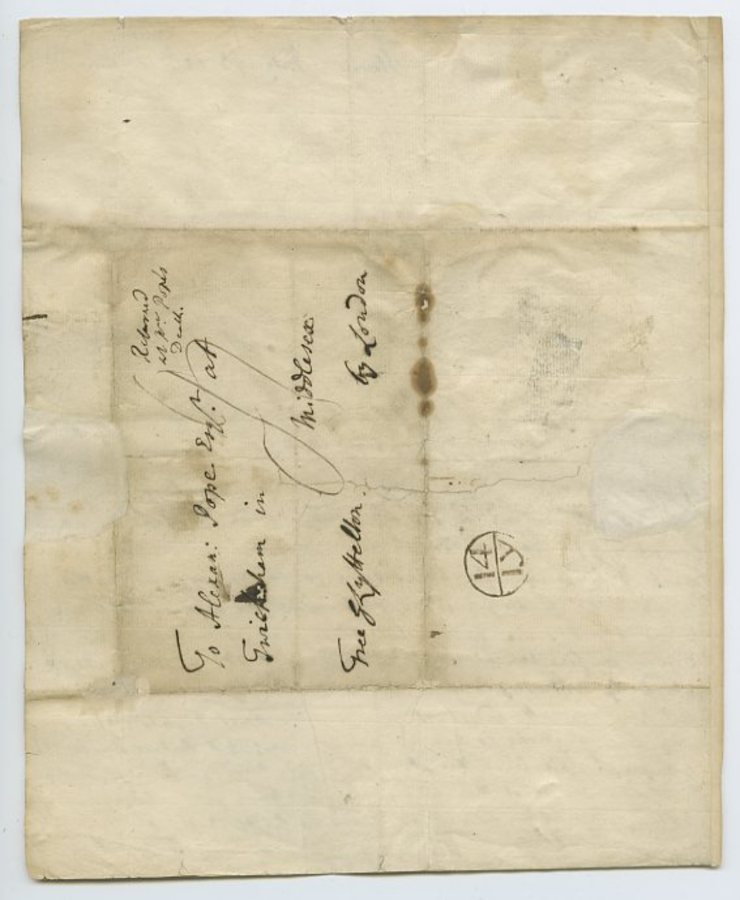 Returned
at Mr Pope's
Death.
To Alexan: Pope Esqr. at
Twickenham in
Middlesex
Free G Lyttelton
by London
14
IY